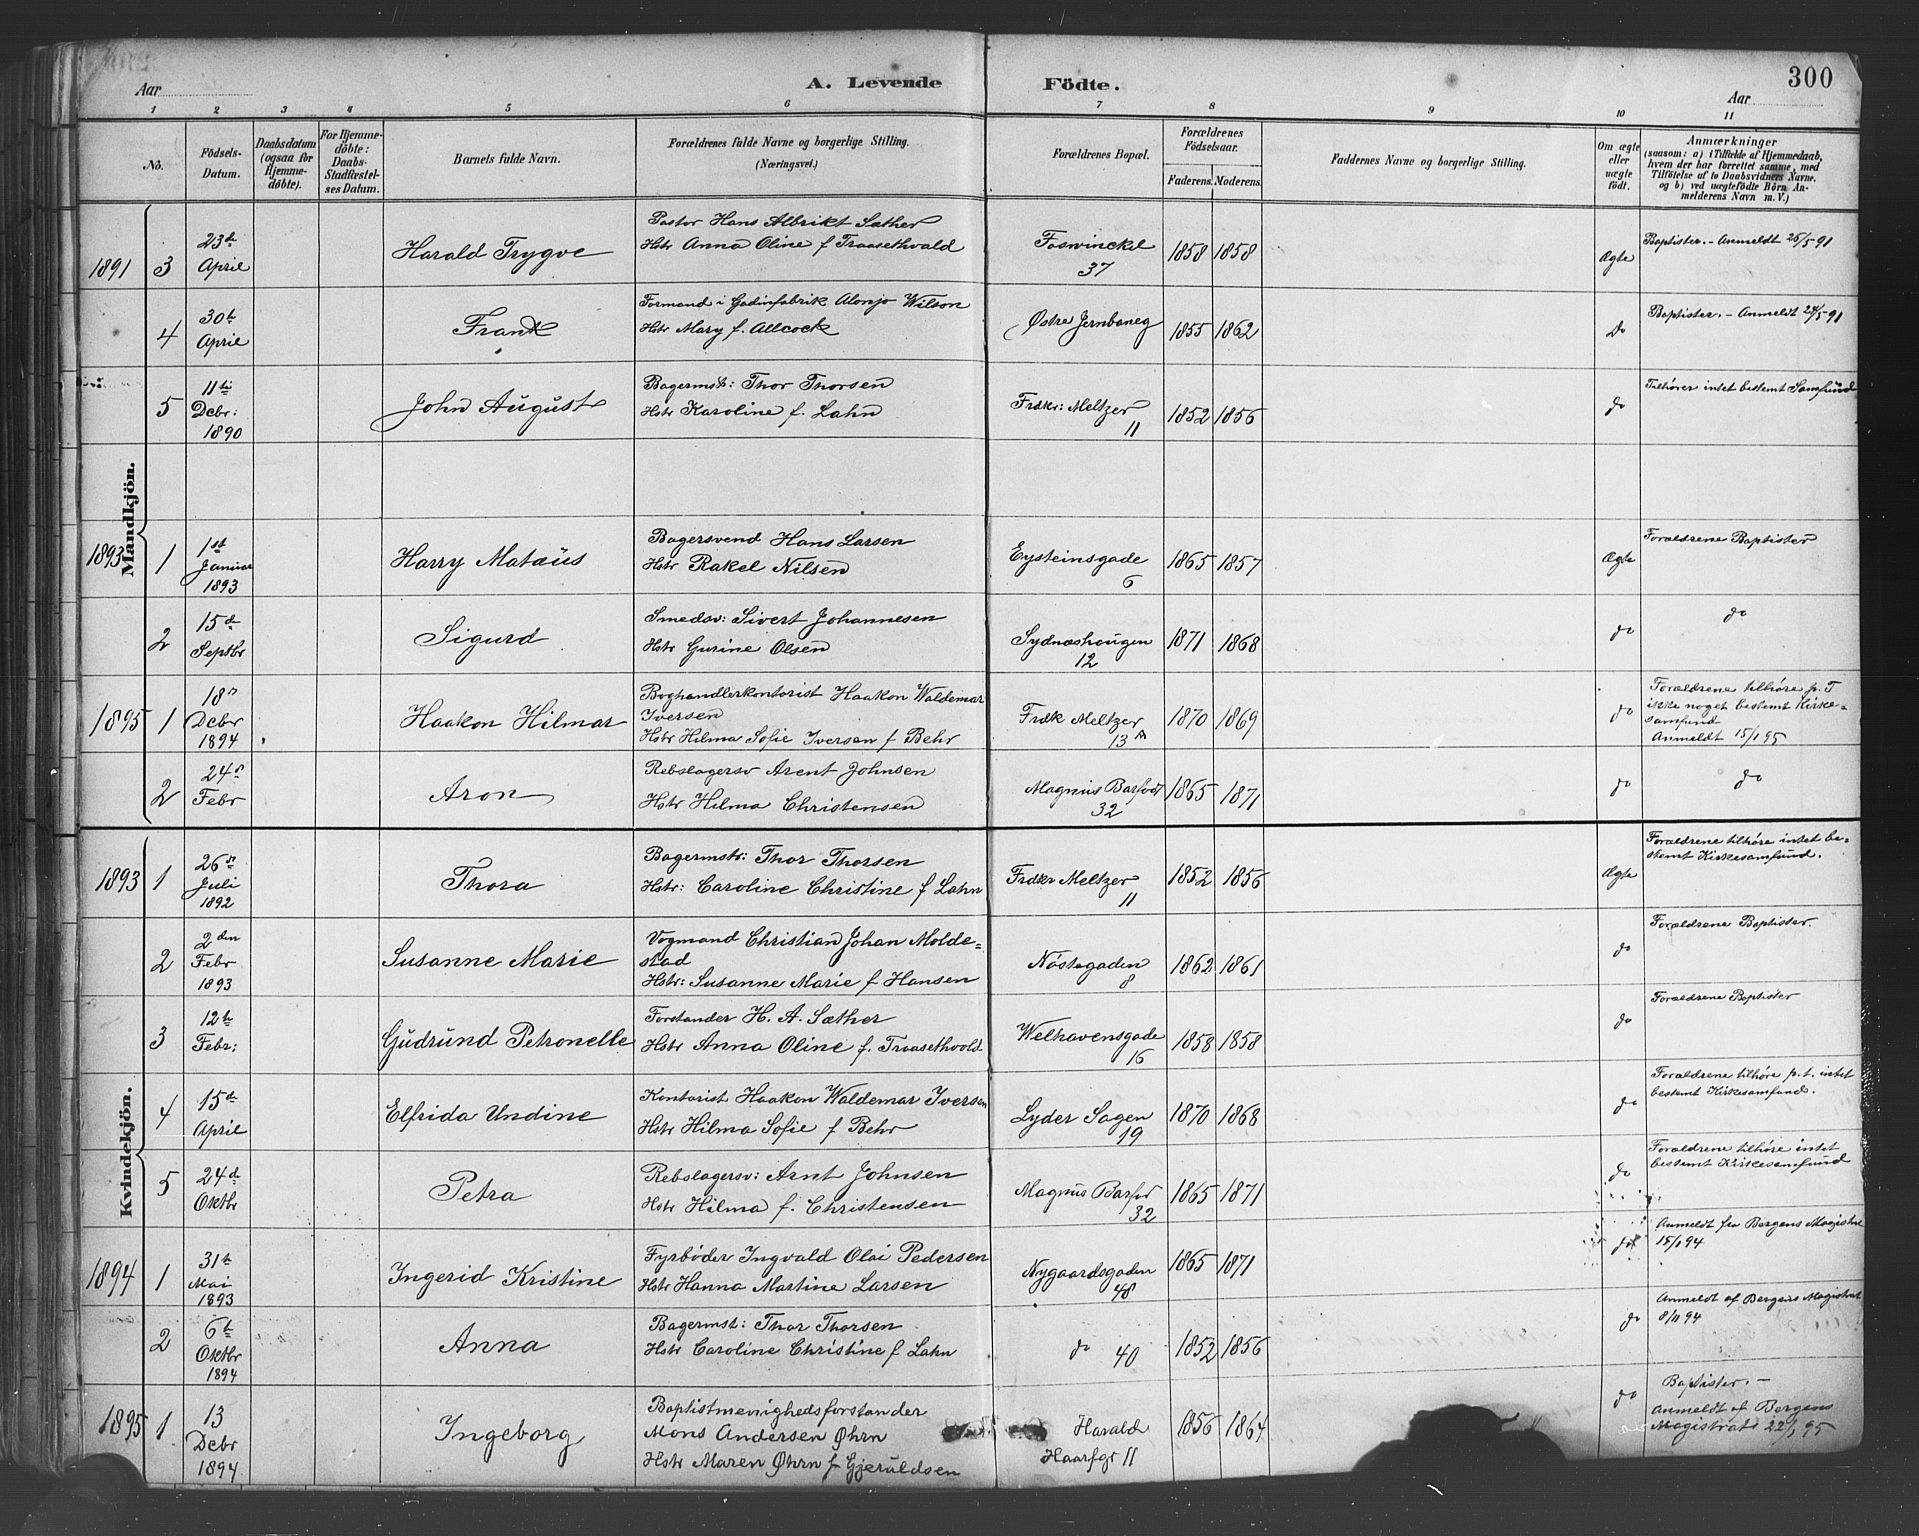 300
Aar
A. Levende
Födte.
Aar
1 2 3 4 5 6 7 8 9 10 11
No.
Födsels-
Datum.
Daabsdatum
(ogsaa for
Hjemme-
døbte).
For Hjemme-
döbte:
Daabs-
Stadfæstel-
ses Datum.
Barnets fulde Navn.
Forældrenes fulde Navne og borgerlige Stilling.
(Næringsvei.)
Forældrenes Bopæl.
Forældrenes
Födselsaar.
Faderens. Moderens.
Faddernes Navne og borgerlige Stilling.
Om ægte
eller
uægte
født.
Anmærkninger
(saasom: a) i Tilfælde af Hjemmedaab,
hvem der har forrettet samme, med
Tilföielse af to Daabsvidners Navne,
og b) ved uægtefödte Börn An-
melderens Navn m. V.)
Mandkjön.
1891 3
23de
April
Harald Trygve
Pastor Hans Albrikt Sæther
Hstr Anna Oline f Traasethvald
Foswinckel
37
1858 1858
Ægte
Baptister. - Anmeldt 25/5 91
4
30te
April
Frank
Formand i Gadinfabrik Alonjo Wilson
Hstr Mary f. Allcock
Østre Jernbaneg
1855 1862
do
Baptister. - Anmeldt 24/5 91
5
11te
Dcbr:
1890
John August
Bagermst: Thor Thorsen
Hstr Karoline f. Lahn
Frdkr: Meltzer
11
1852 1856
do
Tilhører intet bestemt Samfund
1893 1
1st
Januar
1893
Harry Matæus
Bagersvend Hans Larsen
Hstr Rakel Nilsen
Eysteinsgade
6
1865 1857
Ægte
Forældrene Baptister
2
15de
Septbr
Sigurd
Smedsv: Sivert Johannesen
Hstr Gurine Olsen
Sydnæshougen
12
1871 1868
do
do
1895 1
18n
Dcbr
1894
Haakon Hilmar
Boghandlerkontorist Haakon Waldemar
Iversen
Hstr Hilma Sofie Iversen f Behr
Frdk Meltzer
13 A
1870 1869
do
Forældrene tilhøre p. T
ikke noget bestemt Kirke-
samfund
Anmeldt 15/1 95
2
24n
Febr
Aron
Rebslagersv Arent Johnsen
Hstr Hilma Christensen
Magnus Barfodt
32
1865 1871
do
do
Kvindekjön.
1893 1
26n
Juli
1892
Thora
Bagermstr: Thor Thorsen
Hstr: Caroline Christine f Lahn
Frdkr Meltzer
11
1852 1856
Ægte
Forældrene tilhøre intet be-
stemt Kirkesamfund.
2
2den
Febr
1893
Susanne Marie
Vogmand Christian Johan Molde-
stad
Hstr: Susanne Marie f Hansen
Nöstegaden
8
1862 1861
do
Forældrene Baptister.
3
12te
Febr:
Gudrund Petronelle
Forstander H. A. Sæther
Hstr Anna Oline f. Traasethvold
Welhavensgade
16
1858 1858
do
Forældrene Baptister
4
15de
April
Elfrida Undine
Kontorist Haakon Waldemar Iversen
Hstr Hilma Sofie f Behr
Lyder Sagen
19
1870 1868
do
Forældrene tilhøre p. t. intet
bestemt Kirkesamfund.
5
24d
Oktbr
Petra
Rebslagersv: Arnt Johnsen
Hstr Hilma f. Christensen
Magnus Barfor
32
1865 1871
do
Forældrene tilhøre intet
bestemt Kirkesamfund
1894 1
31te
Mai
1893
Ingerid Kristine
Fyrböder Ingvald Olai Pedersen
Hstr Hanna Martine Larsen
Nygaardsgaden
48
1865 1871
do
Anmeldt fra Bergens Magistrat
15/1 94
2
6te
Oktbr
1894
Anna
Bagermst: Thor Thorsen
Hstr Caroline Christine f Lahn
do 40
1852 1856
do
Anmeldt af Bergens Magistrat
8/11 94
1895 1
13
Dcbr
1894
Ingeborg
Baptistmenighedsforstander
Mons Andersen Øhrn
Hstr Maren Øhrn f Gjeruldsen
Harald
Haarfgr 11
1856 1864
do
Baptister. -
Anmeldt af Bergens
Magistrat 22/1 95